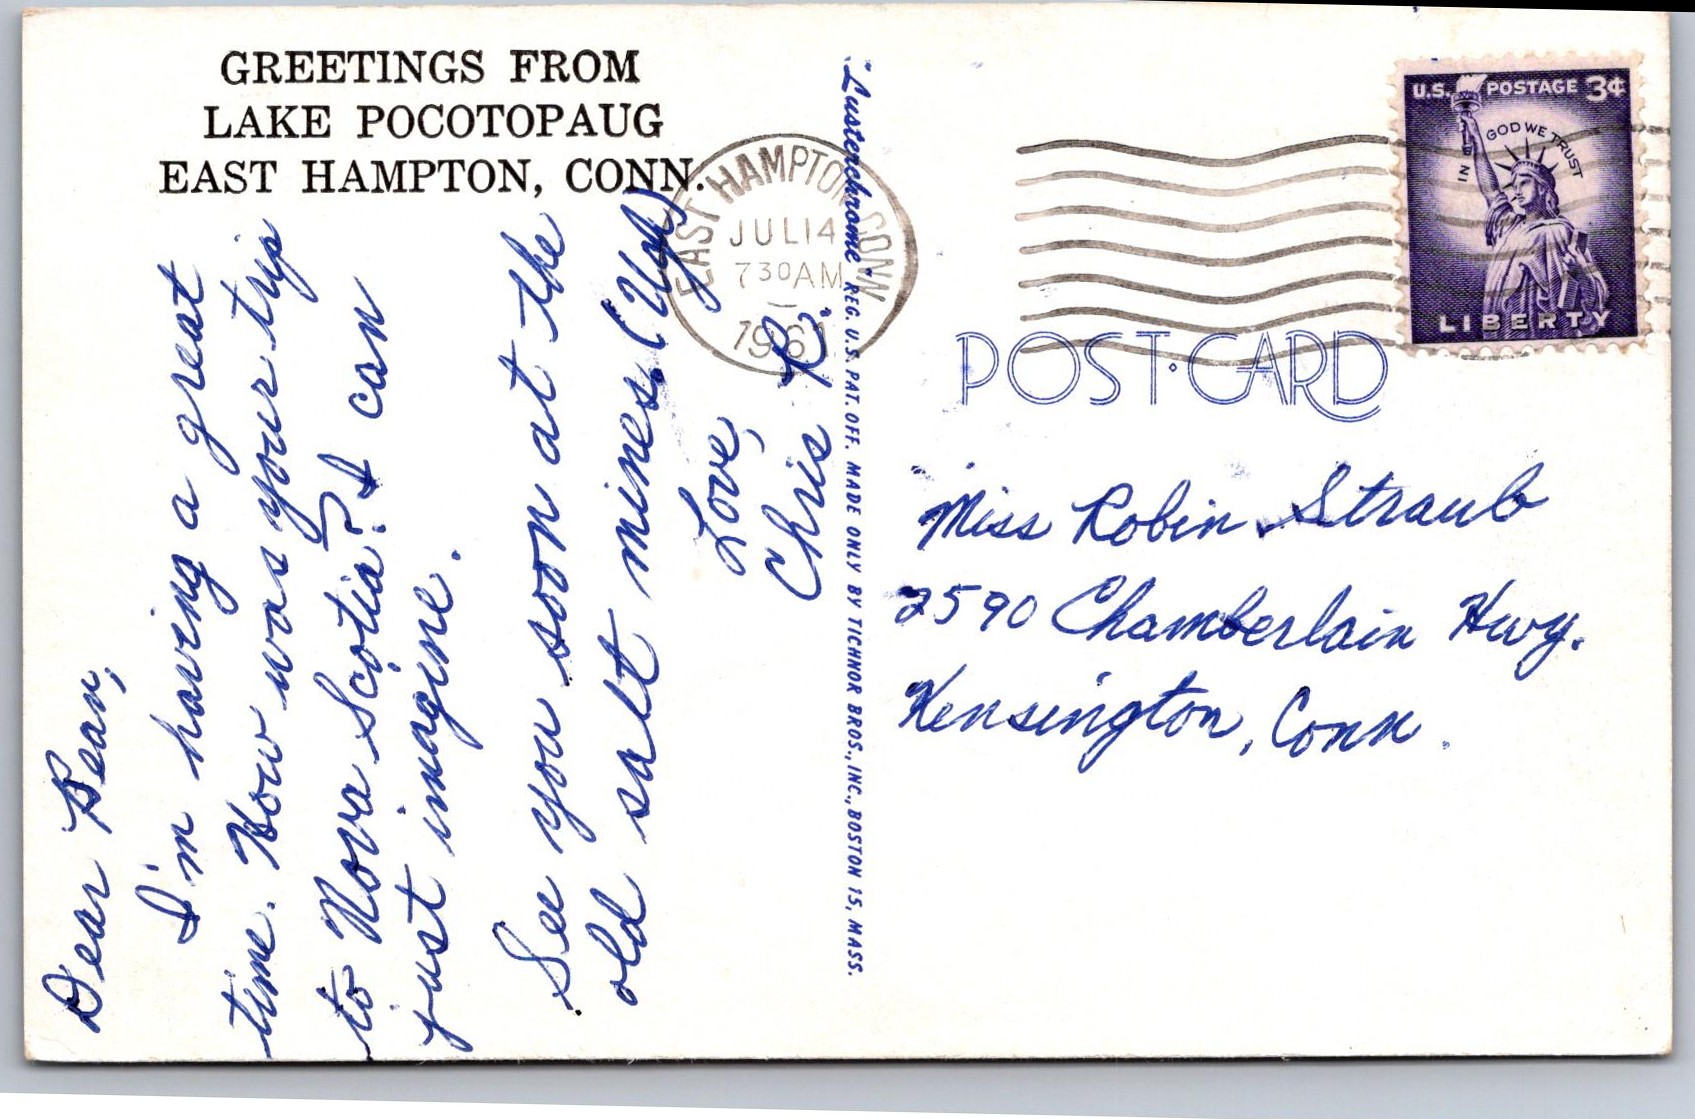 GREETINGS FROM
LAKE POCOTOPAUG
EAST HAMPTON, CONN.
Dear Bean,
I'm having a great
time. How was your trip
to Nova Scotia? I can
just imagine.
See you soon at the
old salt mines. (Ugh)
Love,
Chris R.
EAST HAMPTON CONN
JUL 14
7 30 AM
1961
Lusterchrome - REG. U.S. PAT. OFF. MADE ONLY BY TICHNOR BROS., INC., BOSTON 15, MASS.
U.S. POSTAGE 3¢
IN GOD WE TRUST
LIBERTY
POST·CARD
Miss Robin Straub
2590 Chamberlain Hwy.
Kensington, Conn.